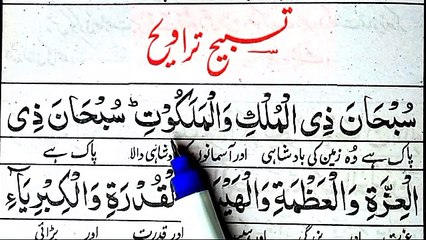 تسبیح تراویح
سُبْحَانَ ذِی الْمُلْكِ وَالْمَلَكُوْتِ ؕ سُبْحَانَ ذِی
پاک ہے وہ زمین کی بادشاہی اور آسمانوں دشاہی والا پاک ہے
الْعِزَّةِ وَالْعَظَمَةِ وَالْهَيْ لْقُدْرَةِ وَالْكِبْرِيَآءِ
اور اور قدرت اور بڑائی